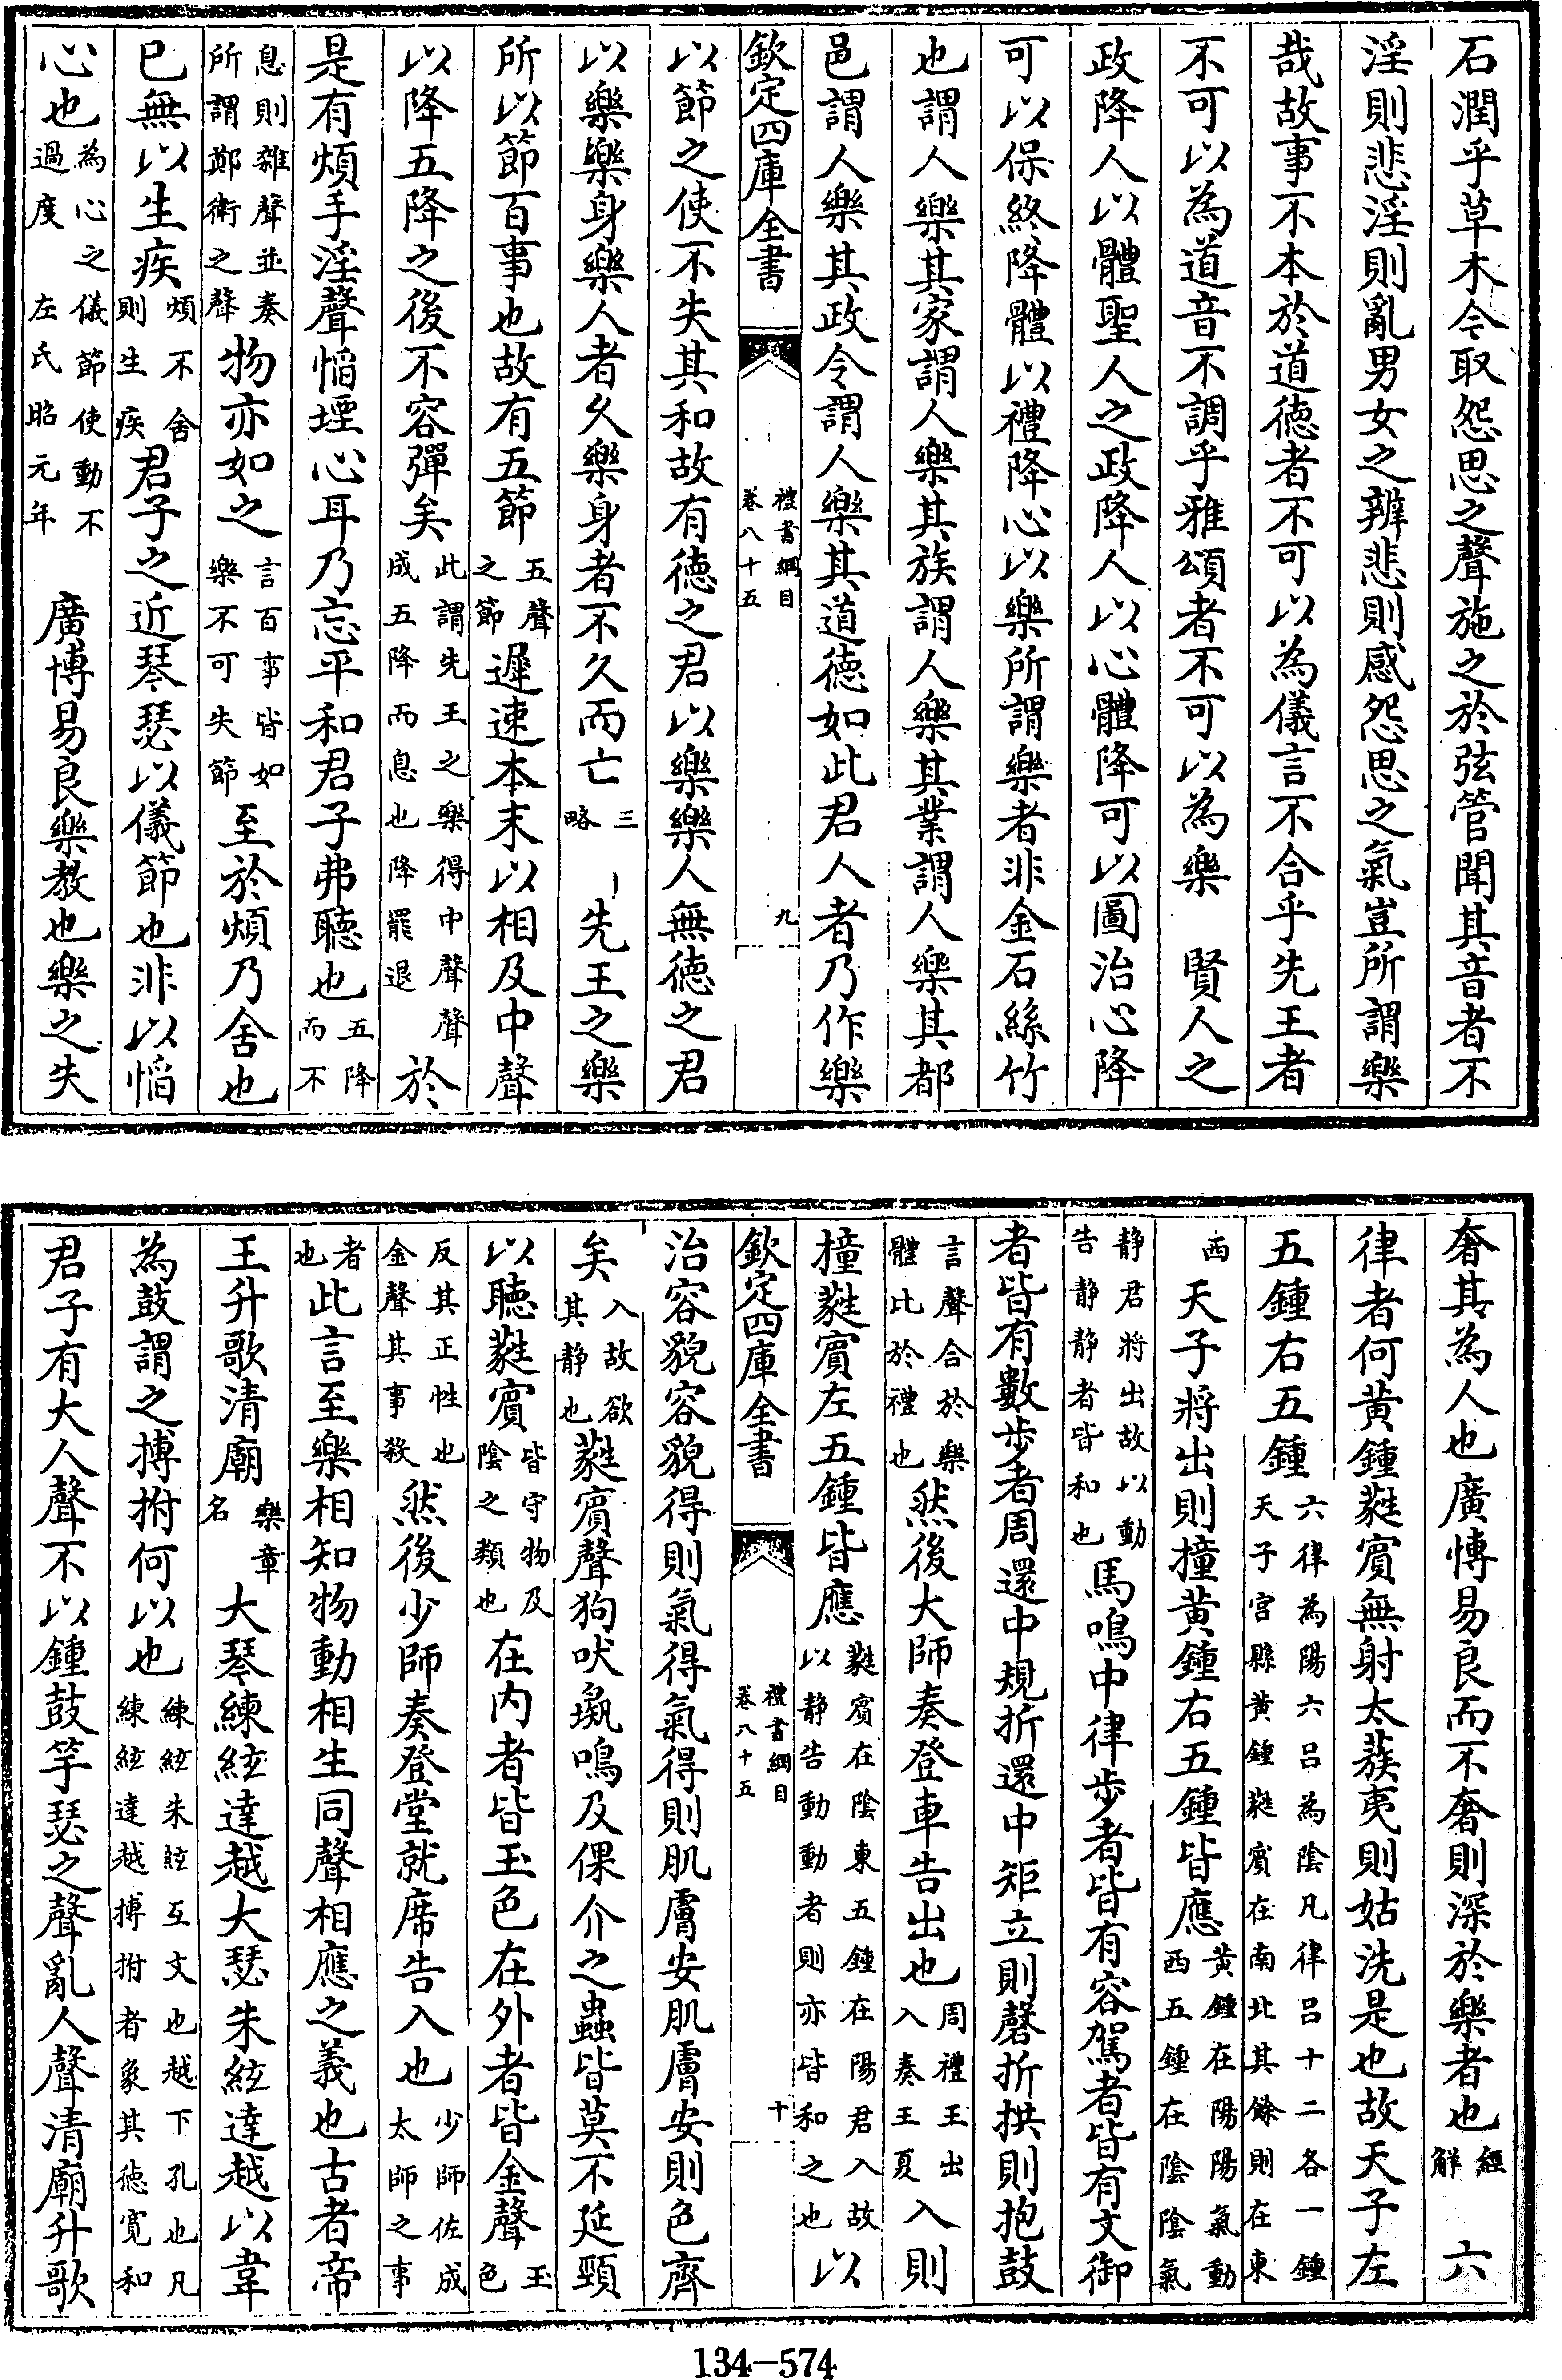 石潤乎草木今取怨思之聲施之於弦管聞其音者不
淫則悲淫則亂男女之辨悲則感怨思之氣豈所謂樂
哉故事不本於道德者不可以為儀言不合乎先王者
不可以為道音不調乎雅頌者不可以為樂　賢人之
政降人以體聖人之政降人以心體降可以圖治心降
可以保終降體以禮降心以樂所謂樂者非金石絲竹
也謂人樂其家謂人樂其族謂人樂其業謂人樂其都
邑謂人樂其政令謂人樂其道德如此君人者乃作樂
欽定四庫全書　禮書綱目卷八十五　九
以節之使不失其和故有德之君以樂樂人無德之君
以樂樂身樂人者久樂身者不久而亡三略　先王之樂
所以節百事也故有五節五聲之節遲速本末以相及中聲
以降五降之後不容彈矣此謂先王之樂得中聲聲成五降而息也降罷退於
是有煩手淫聲慆堙心耳乃忘平和君子弗聽也五降而不
息則雜聲並奏所謂鄭衛之聲物亦如之言百事皆如樂不可失節至於煩乃舍也
已無以生疾煩不舍則生疾君子之近琴瑟以儀節也非以慆
心也為心之儀節使動不過度　左氏昭元年　廣博易良樂教也樂之失
奢其為人也廣博易良而不奢則深於樂者也經解　六
律者何黃鍾蕤賓無射太蔟夷則姑洗是也故天子左
五鍾右五鍾六律為陽六呂為陰凡律呂十二各一鍾天子宮縣黃鍾蕤賓在南北其餘則在東
西天子將出則撞黃鍾右五鍾皆應黃鍾在陽陽氣動西五鍾在陰陰氣
靜君將出故以動告靜靜者皆和也馬鳴中律步者皆有容駕者皆有文御
者皆有數步者周還中規折還中矩立則磬折拱則抱鼓
言聲合於樂體比於禮也然後大師奏登車告出也周禮王出入奏王夏入則
撞蕤賓左五鍾皆應蕤賓在陰東五鍾在陽君入故以靜告動動者則亦皆和之也以
欽定四庫全書　禮書綱目卷八十五　十
治容貌容貌得則氣得氣得則肌膚安肌膚安則色齊
矣入故欲其靜也蕤賓聲狗吠彘鳴及倮介之蟲皆莫不延頸
以聽蕤賓皆守物及陰之類也在內者皆玉色在外者皆金聲玉色
反其正性也金聲其事殺然後少師奏登堂就席告入也少師佐成太師之事
者也此言至樂相知物動相生同聲相應之義也古者帝
王升歌清廟樂章名大琴練絃達越大瑟朱絃達越以韋
為鼓謂之搏拊何以也練絃朱絃互文也越下孔也凡練絃達越搏拊者象其德寬和
君子有大人聲不以鍾鼓竽瑟之聲亂人聲清廟升歌
134—574